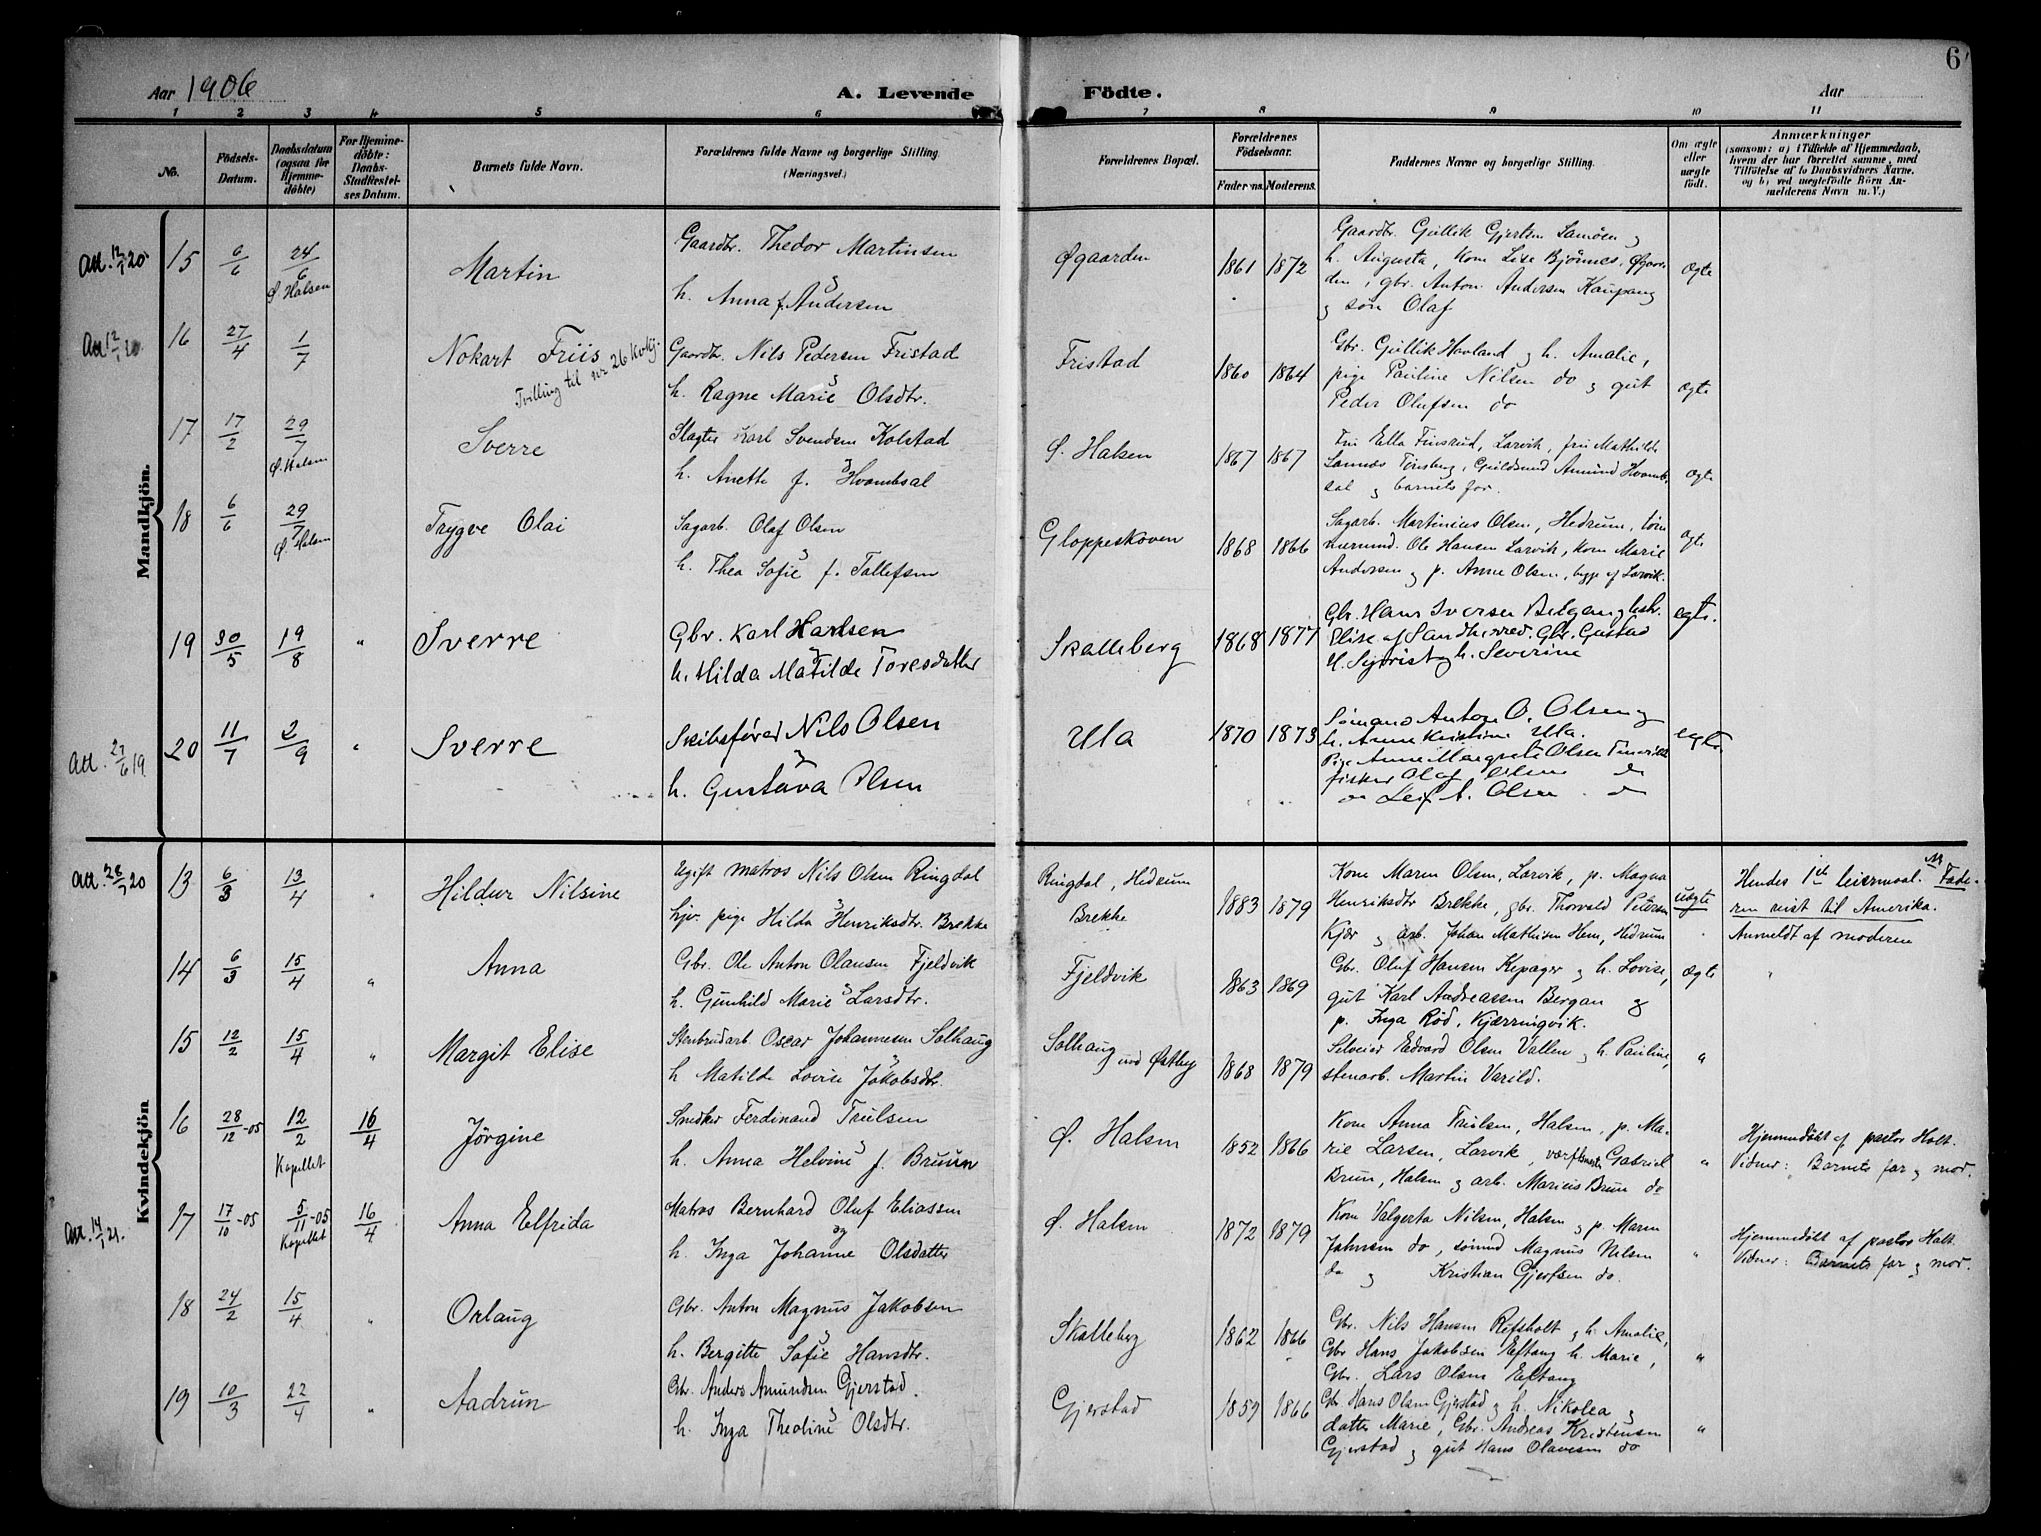 6
Aar 1906
A. Levende Födte.
Aar
1 2 3 4 5 6 7 8 9 10 11
No.
Födsels-Datum.
Daabsdatum (ogsaa for Hjemme-döbte)
For Hjemme-döbte: Daabs-Stadfæstelses Datum.
Barnets fulde Navn.
Forældrenes fulde Navne og borgerlige Stilling (Næringsvei.)
Forældrenes Bopæl.
Forældrenes Födselsaar.
Faderns. Moderens.
Faddernes Navne og borgerlige Stilling.
Om ægte eller uægte födt.
Anmærkninger
(saasom: a) i Tilfælde af Hjemmedaab,
hvem der har forrettet samme, med
Tilföielse af to Daabsvidners Navne.
og b) ved uægtefödte Börn An-
melderens Navn m. V.)
Mandkjön.
Att. 12/1 20. 15 6/6 24/6 Ø. Halsen
Martin
Gaardbr. Thedor Martinsen
og
h. Anna f. Andersen
Øgaarden 1861 1872
Gaardbr. Gullik Gjertsen Samöen og
h. Augusta, Kone Lise Bjönnes, Øgaar-
den, gbr. Anton Andersen Kaupang
og sön Olaf
Ægte
Att 12/1 20 16 27/4 1/7
Nokart Friis
Tvilling til nr 26 Kvkj.
Gaardbr. Nils Pedersen Fristad
og
h. Ragne Marie Olsdtr.
Fristad 1860 1864
Gbr. Gullik Havland og h. Amalie,
pige Pauline Nilsen do og gut
Peder Olufsen do
Ægte
17 17/2 29/7 Ø. Halsen
Sverre
Slagter Karl Svendsen Kolstad
og
h. Anette f. Hvambsal
Ø. Halsen 1867 1867
Fru Ella Finsrud, Larvik, fru Mathilde
Sannæs Tönsberg, Guldsmed Amund Hvamb-
sal og barnets far.
Ægte
18 6/6 29/7 Ø. Halsen
Trygve Olai
Sagarb. Olaf Olsen
og
h. Thea Sofie f. Tollefsen
Gloppeskoven 1868 1866
Sagarb. Martinius Olsen, Hedrum, töm-
mermd. Ole Hansen Larvik, kone Marie
Andersen og p. Anne Olsen, begge af Larvik.
Ægte
19 30/5 19/8 "
Sverre
Gbr. Karl Karlsen
og
h. Hilda Matilde Toresdatter
Skalleberg 1868 1877
Gbr. Hans Iversen Bergan
Elise af Sandherred. Gbr. Gustad
og h. Severine
egte.
Att. 27/6 19. 20 11/7 2/9 "
Sverre
Skibsförer Nils Olsen
og
h. Gustava Olsen
Ula 1870 1873
Sömand Anton O. Olsen og
h. Anne Kristine Ula.
Pige Anne Margrete Olsen
fisker Olaf Olsen do
do Leif A. Olsen do
egte
Kvindekjön
Att. 28/7 20 13 6/3 13/4 "
Hildur Nilsine
Ugift matros Nils Olsen Ringdal
og
pige Hilda Henriksdtr. Brekke
Ringdal, Hedrum
Brekke 1883 1879
Kone Maren Olsen, Larvik, p. Magna
Henriksdtr Brekke, gbr. Thorvald Petersen
Kjær og arb. Johan Mathisen Hem, Hedrum
uægte
Hendes 1ste leiermaal. Fade-
ren reist til Amerika.
Anmeldt af moderen
14 6/3 15/4 "
Anna
Gbr. Ole Anton Olausen Fjeldvik
og
h. Gunhild Marie Larsdtr.
Fjeldvik 1863 1869
Gbr. Oluf Hansen Kepager og h. Lovise,
gut Karl Andreassen Bergan og
p. Inga Röd, Kjærringvik.
Ægte "
15 12/2 15/4 "
Margit Elise
Stenbrudarb Oscar Johannesen Solhaug
og
h Matilde Lovise Jakobsdtr.
Solhaug und Østby 1868 1879
Selveier Edvard Olsen Vallen og h. Pauline,
stenarb. Martin Varild.
"
16 28/12-05 12/2 Kapellet 16/4
Jörgine
Snedker Ferdinand Trulsen
og
h. Anna Helvine f. Bruun
Ø. Halsen 1852 1866
Kone Anna Trulsen, Halsen, p. Ma-
rie Larsen, Larvik, Gabriel
Brun, Halsen og arb. Marius Brun do
"
Hjemmedöbt af pastor Holt.
Vidner: Barnets far og mor.
Att. 14/1 21. 17 17/10-05 5/11-05 Kapellet 16/4
Anna Elfrida
Matros Bernhard Oluf Eliassen
og
h. Inga Johanne Olsdatter
Ø. Halsen 1872 1879
Kone Valgerta Nilsen, Halsen og p. Maren
Johnsen do, sömnd Magnus Nilsen
do og Kristian Gjertsen do.
"
Hjemmedöbt af pastor Holt.
Vidner: Barnets far og mor.
18 24/2 15/4 "
Orlaug
Gbr. Anton Magnus Jakobsen
og
h. Bergitte Sofie Hansdtr.
Skalleberg 1862 1866
Gbr. Nils Hansen Refsholt og h. Amalie,
Gbr Hans Jakobsen Eftang h. Marie,
Gbr. Lars Olsen Eftang
"
19 10/3 22/4 "
Aadrun
Gbr. Anders Amundsen Gjerstad.
og
h. Inga Theoline Olsdtr.
Gjerstad 1859 1866
Gbr Hans Olsen Gjerstad og h. Nikolea og
datter Marie, Gbr. Andreas Kristensen
Gjerstad og gut Hans Olavesen do
"